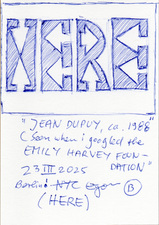 HERE
"JEAN DUPUY, ca. 1988"
(Seen when i googled the
EMILY HARVEY FOUN-
DATION"
23 III 2025
Berlin! NYC
B
(HERE)